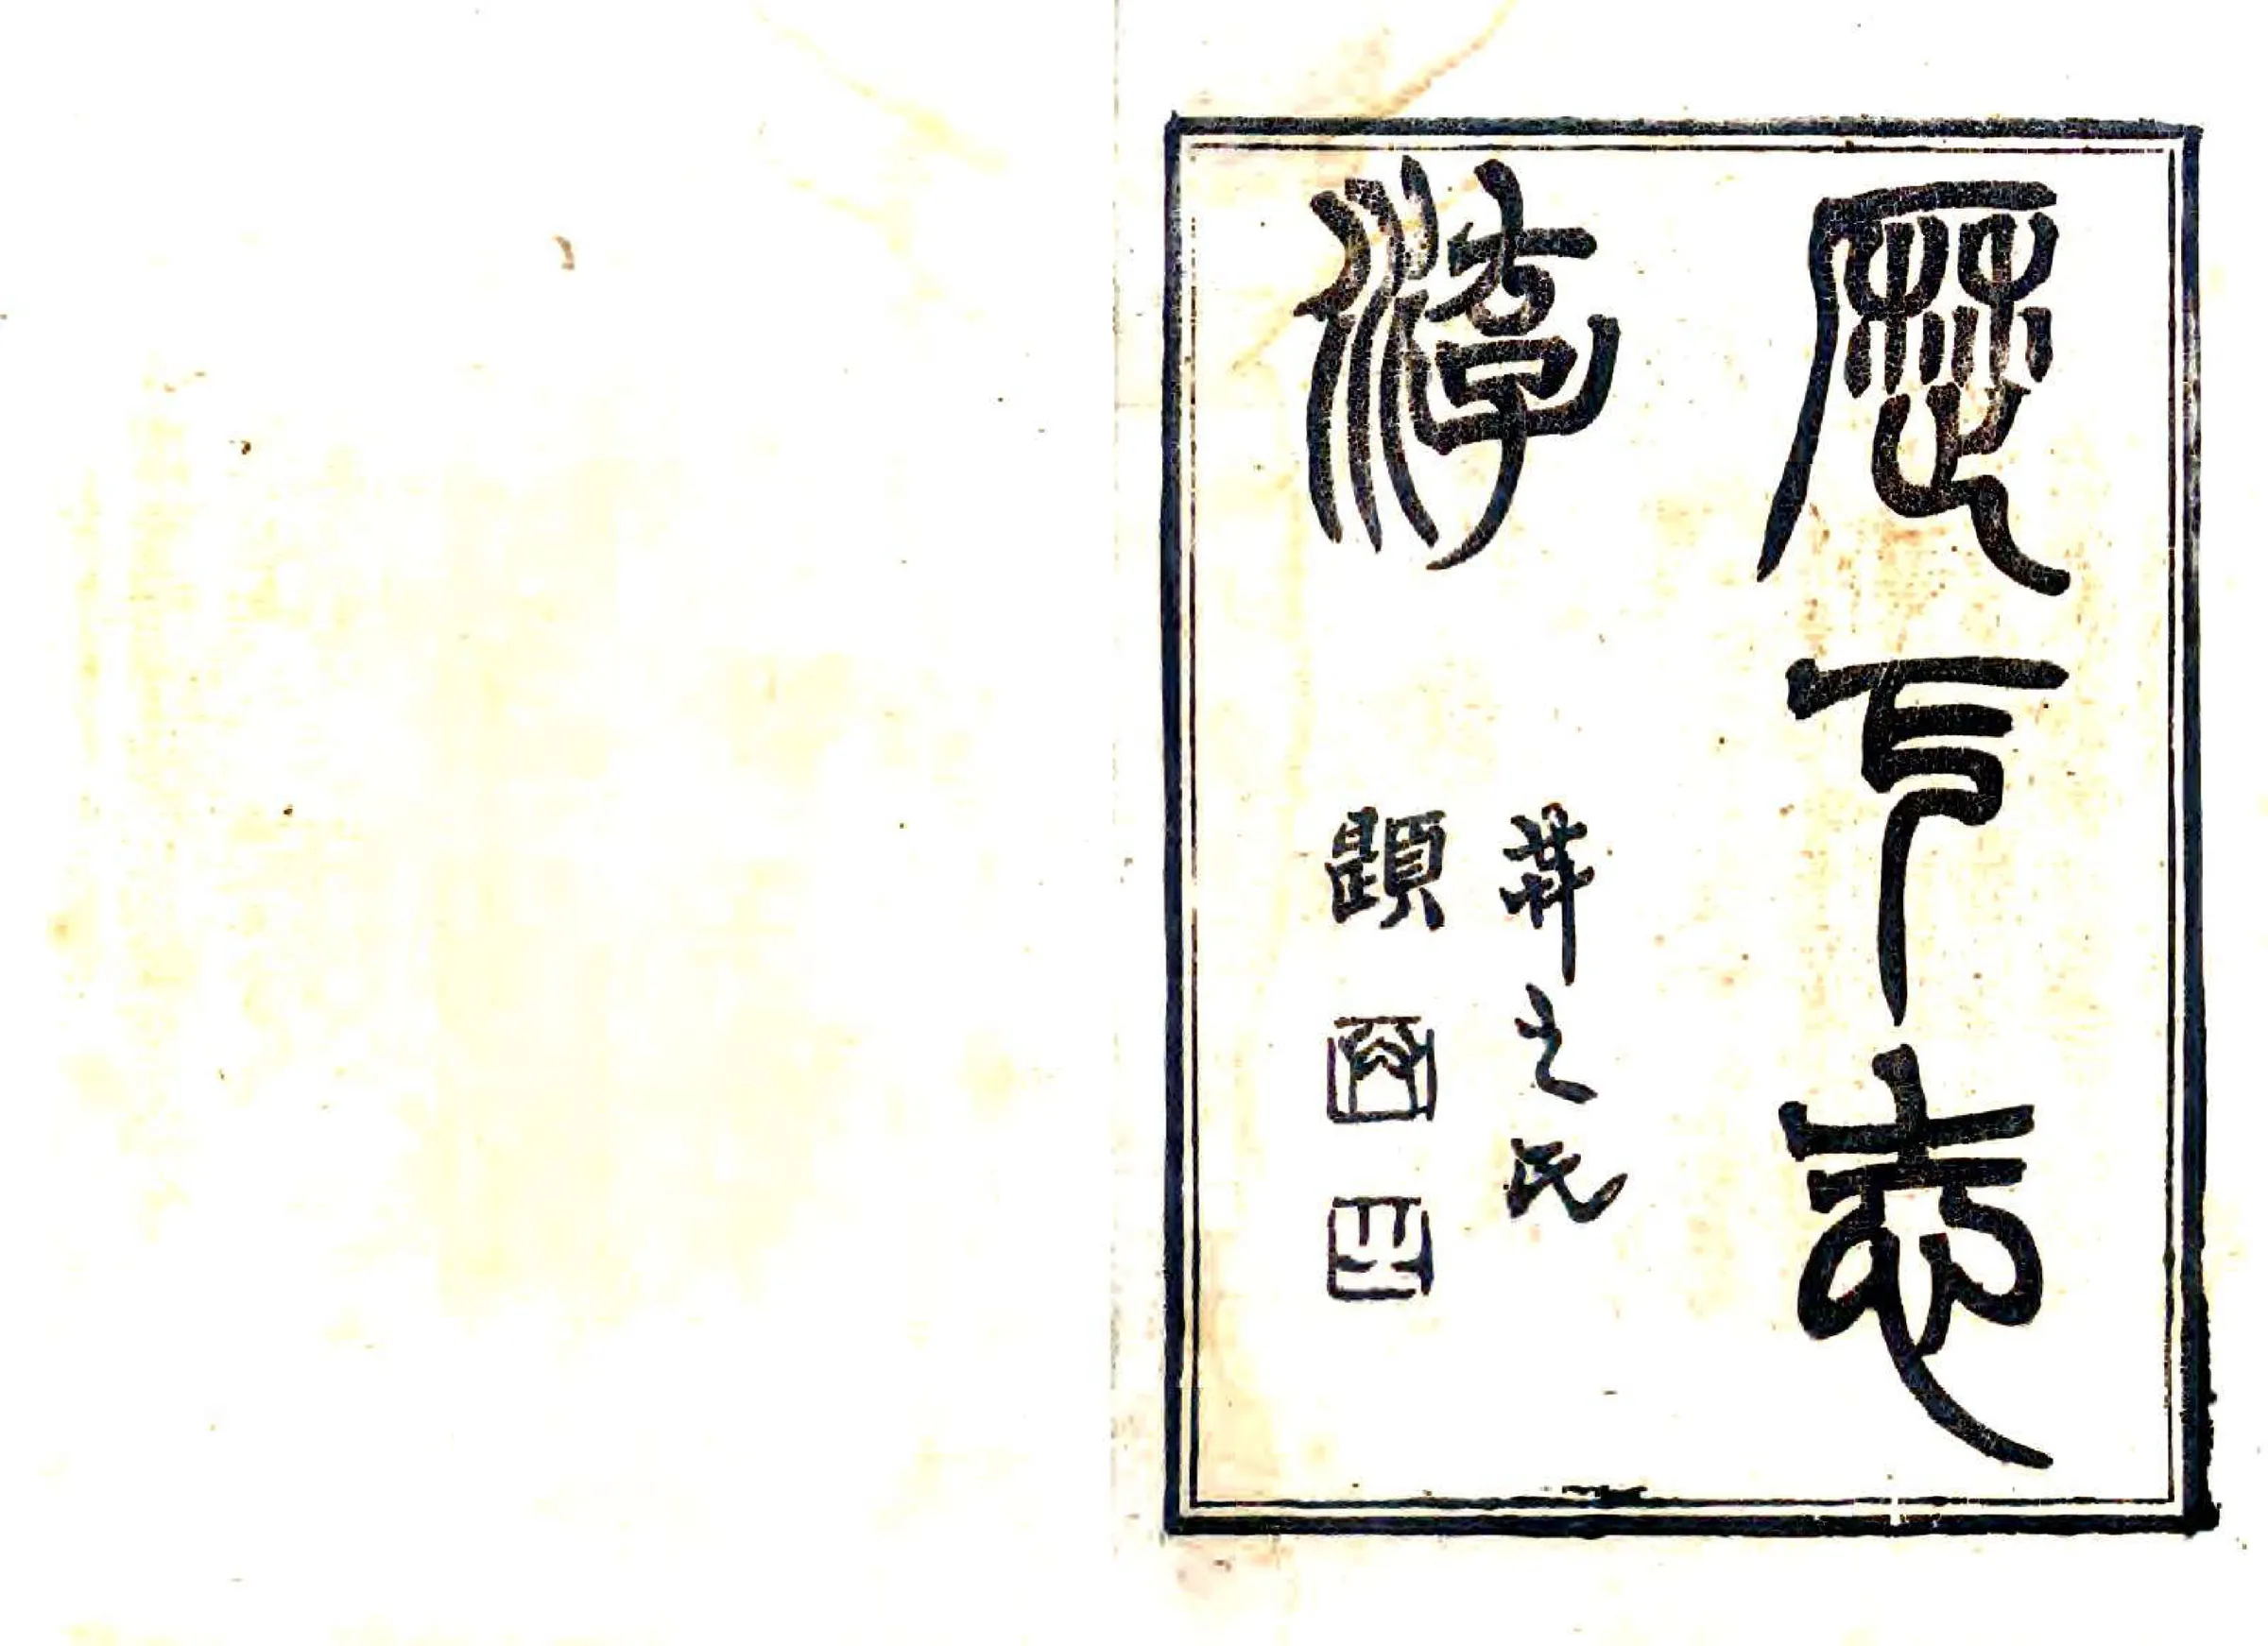 歷下志
游
莽之氏
題